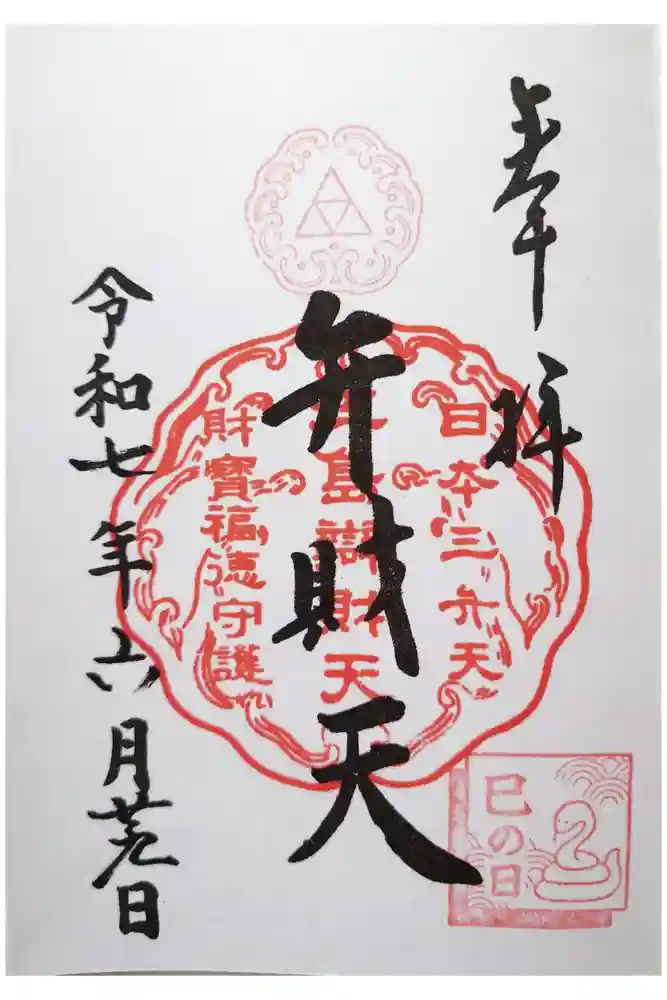 奉拝
日本三弁天
弁財天
江島辨財天
財寶福徳守護
令和七年六月廿九日
巳の日